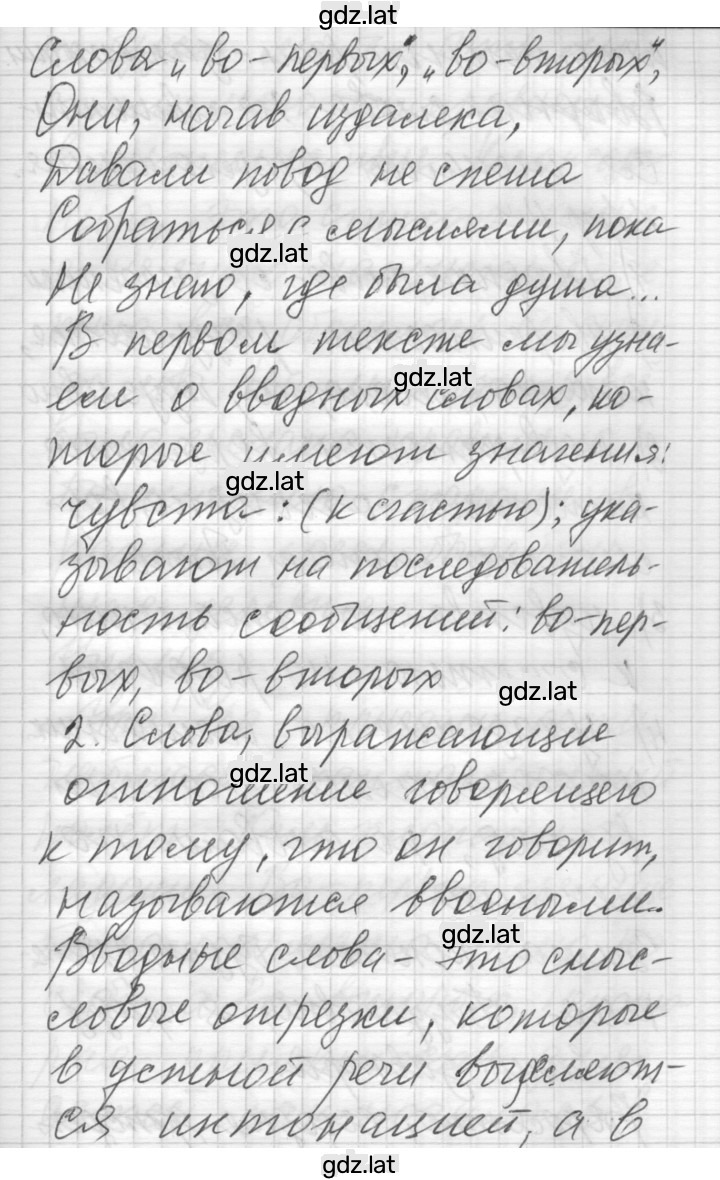 gdz.lat
Слова „во-первых", „во-вторых",
Они, начав издалека,
Давали повод не спеша
Собраться с мыслями, пока
gdz.lat
Не знаю, где была душа...
В первом тексте мы узна-
gdz.lat
ем о вводных словах, ко-
торые имеют значения:
gdz.lat
чувста: (к счастью); ука-
зывают на последователь-
ность сообщений: во-пер-
вых, во-вторых
gdz.lat
2. Слова, выражающие
gdz.lat
отношение говорящего
к тому, что он говорит,
называются вводными.
gdz.lat
Вводные слова - это смыс-
ловые отрезки, которые
в устной речи выделяют-
ся интонацией, а в
gdz.lat